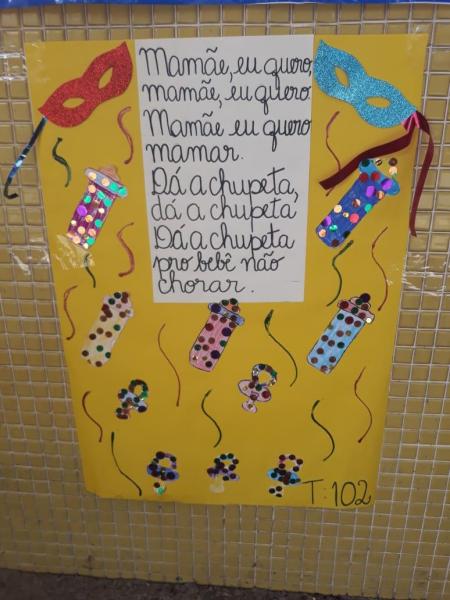 Mamãe, eu quero,
mamãe, eu quero.
Mamãe eu quero
mamar.
Dá a chupeta,
dá a chupeta
Dá a chupeta
pro bebê não
chorar.
T: 102